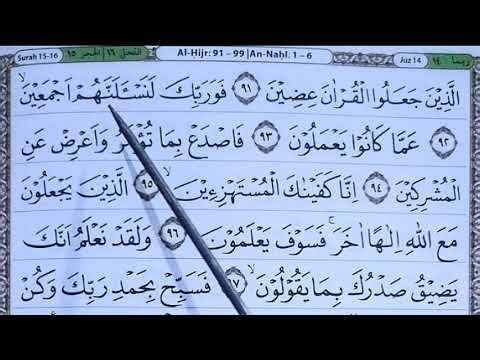 Surah 15-16 النحل ١٦ | الحجر ١٥ Al-Hijr: 91 – 99 | An-Naḥl: 1 – 6 Juz 14 ربما : ١٤
الَّذِيْنَ جَعَلُوا الْقُرْاٰنَ عِضِيْنَ ﴿٩١﴾ فَوَرَبِّكَ لَنَسْـَٔلَنَّهُمْ اَجْمَعِيْنَ ۙ
﴿٩٢﴾ عَمَّا كَانُوْا يَعْمَلُوْنَ ﴿٩٣﴾ فَاصْدَعْ بِمَا تُؤْمَرُ وَاَعْرِضْ عَنِ
الْمُشْرِكِيْنَ ﴿٩٤﴾ اِنَّا كَفَيْنٰكَ الْمُسْتَهْزِءِيْنَ ۙ ﴿٩٥﴾ الَّذِيْنَ يَجْعَلُوْنَ
مَعَ اللّٰهِ اِلٰهًا اٰخَرَ ۚ فَسَوْفَ يَعْلَمُوْنَ ﴿٩٦﴾ وَلَقَدْ نَعْلَمُ اَنَّكَ
يَضِيْقُ صَدْرُكَ بِمَا يَقُوْلُوْنَ ۙ ﴿٩٧﴾ فَسَبِّحْ بِحَمْدِ رَبِّكَ وَكُنْ